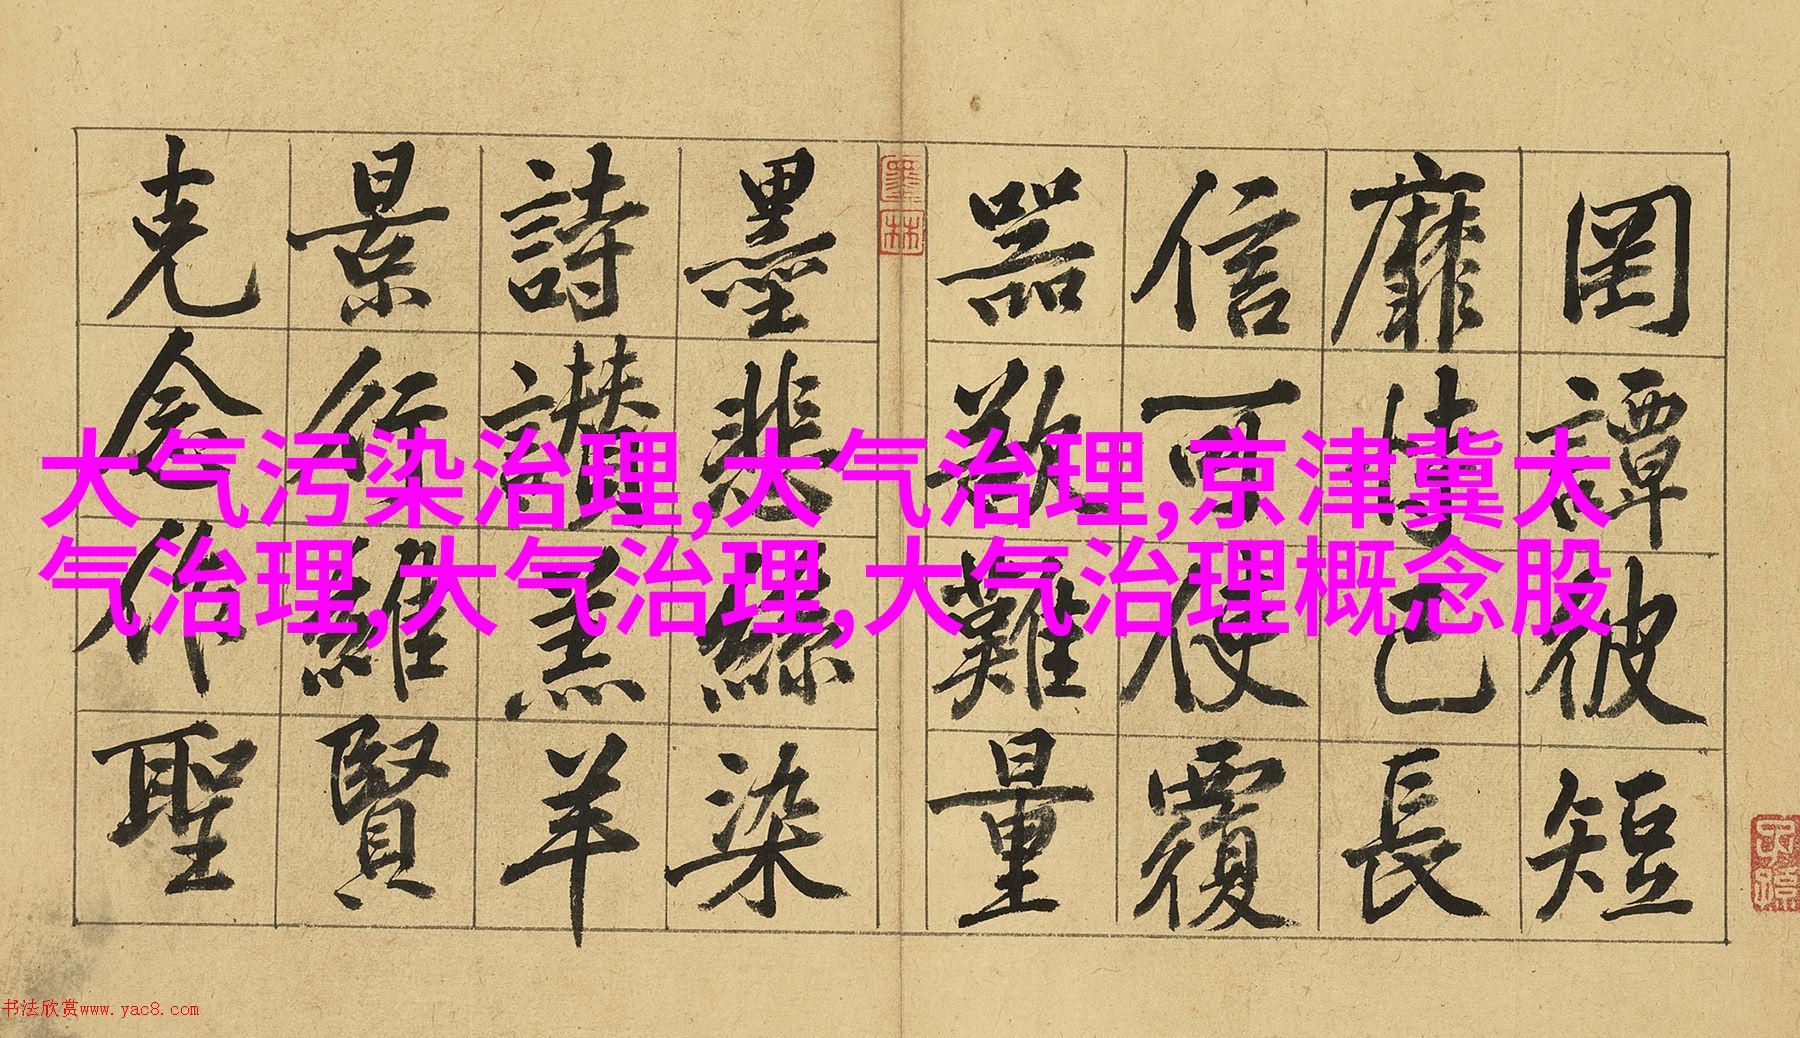 罔譚彼短
靡恃己長
信可使覆
器欲難量
墨悲絲染
詩讚羔羊
景行維賢
克念作聖
墨林
大气污染治理,大气治理,京津冀大
气治理,大气治理,大气治理概念股
书法欣赏www.yac8.com